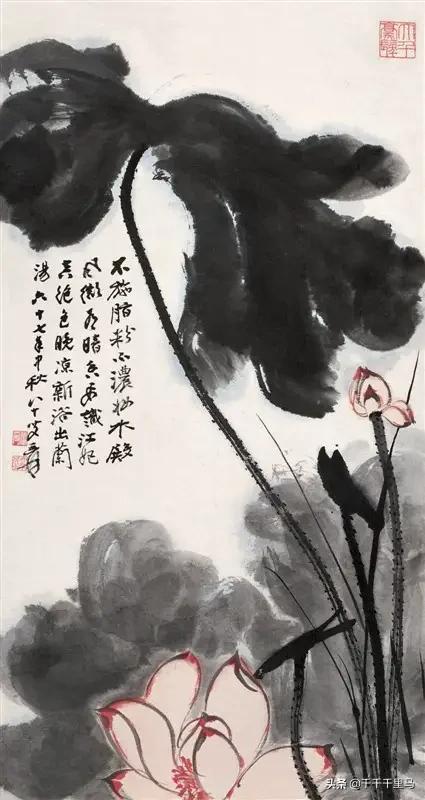 大千豪髮
不施脂粉不濃妝水殿
風微有暗香要識江妃
真絕色晚涼新浴出蘭
湯 六十七年中秋八十叟爰
头条 @千千千里马